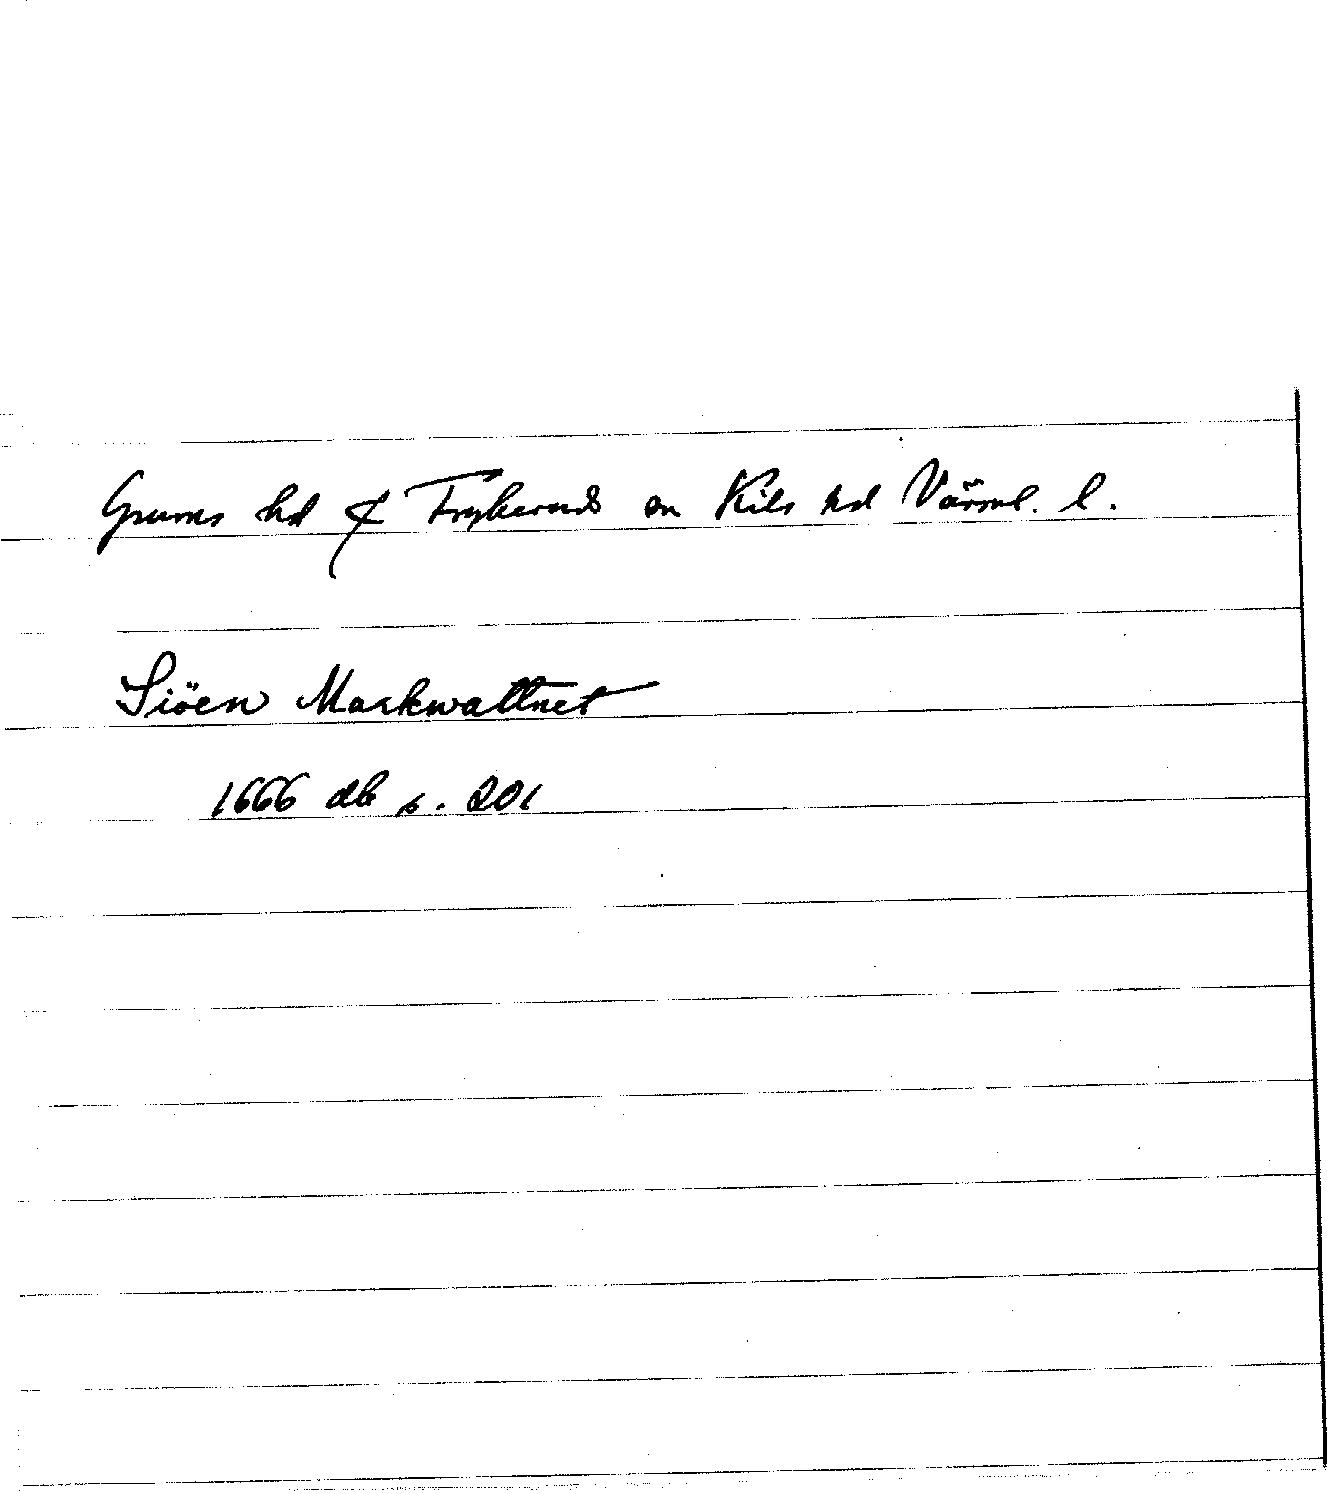 Grums hd & Frykeruds sn Kils hd Värml. l.
Siöen Markwattnet
1666 db s. 201